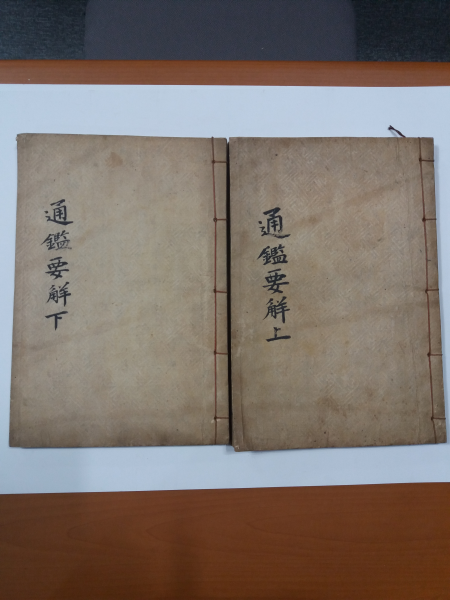 通鑑要觧上
通鑑要觧下